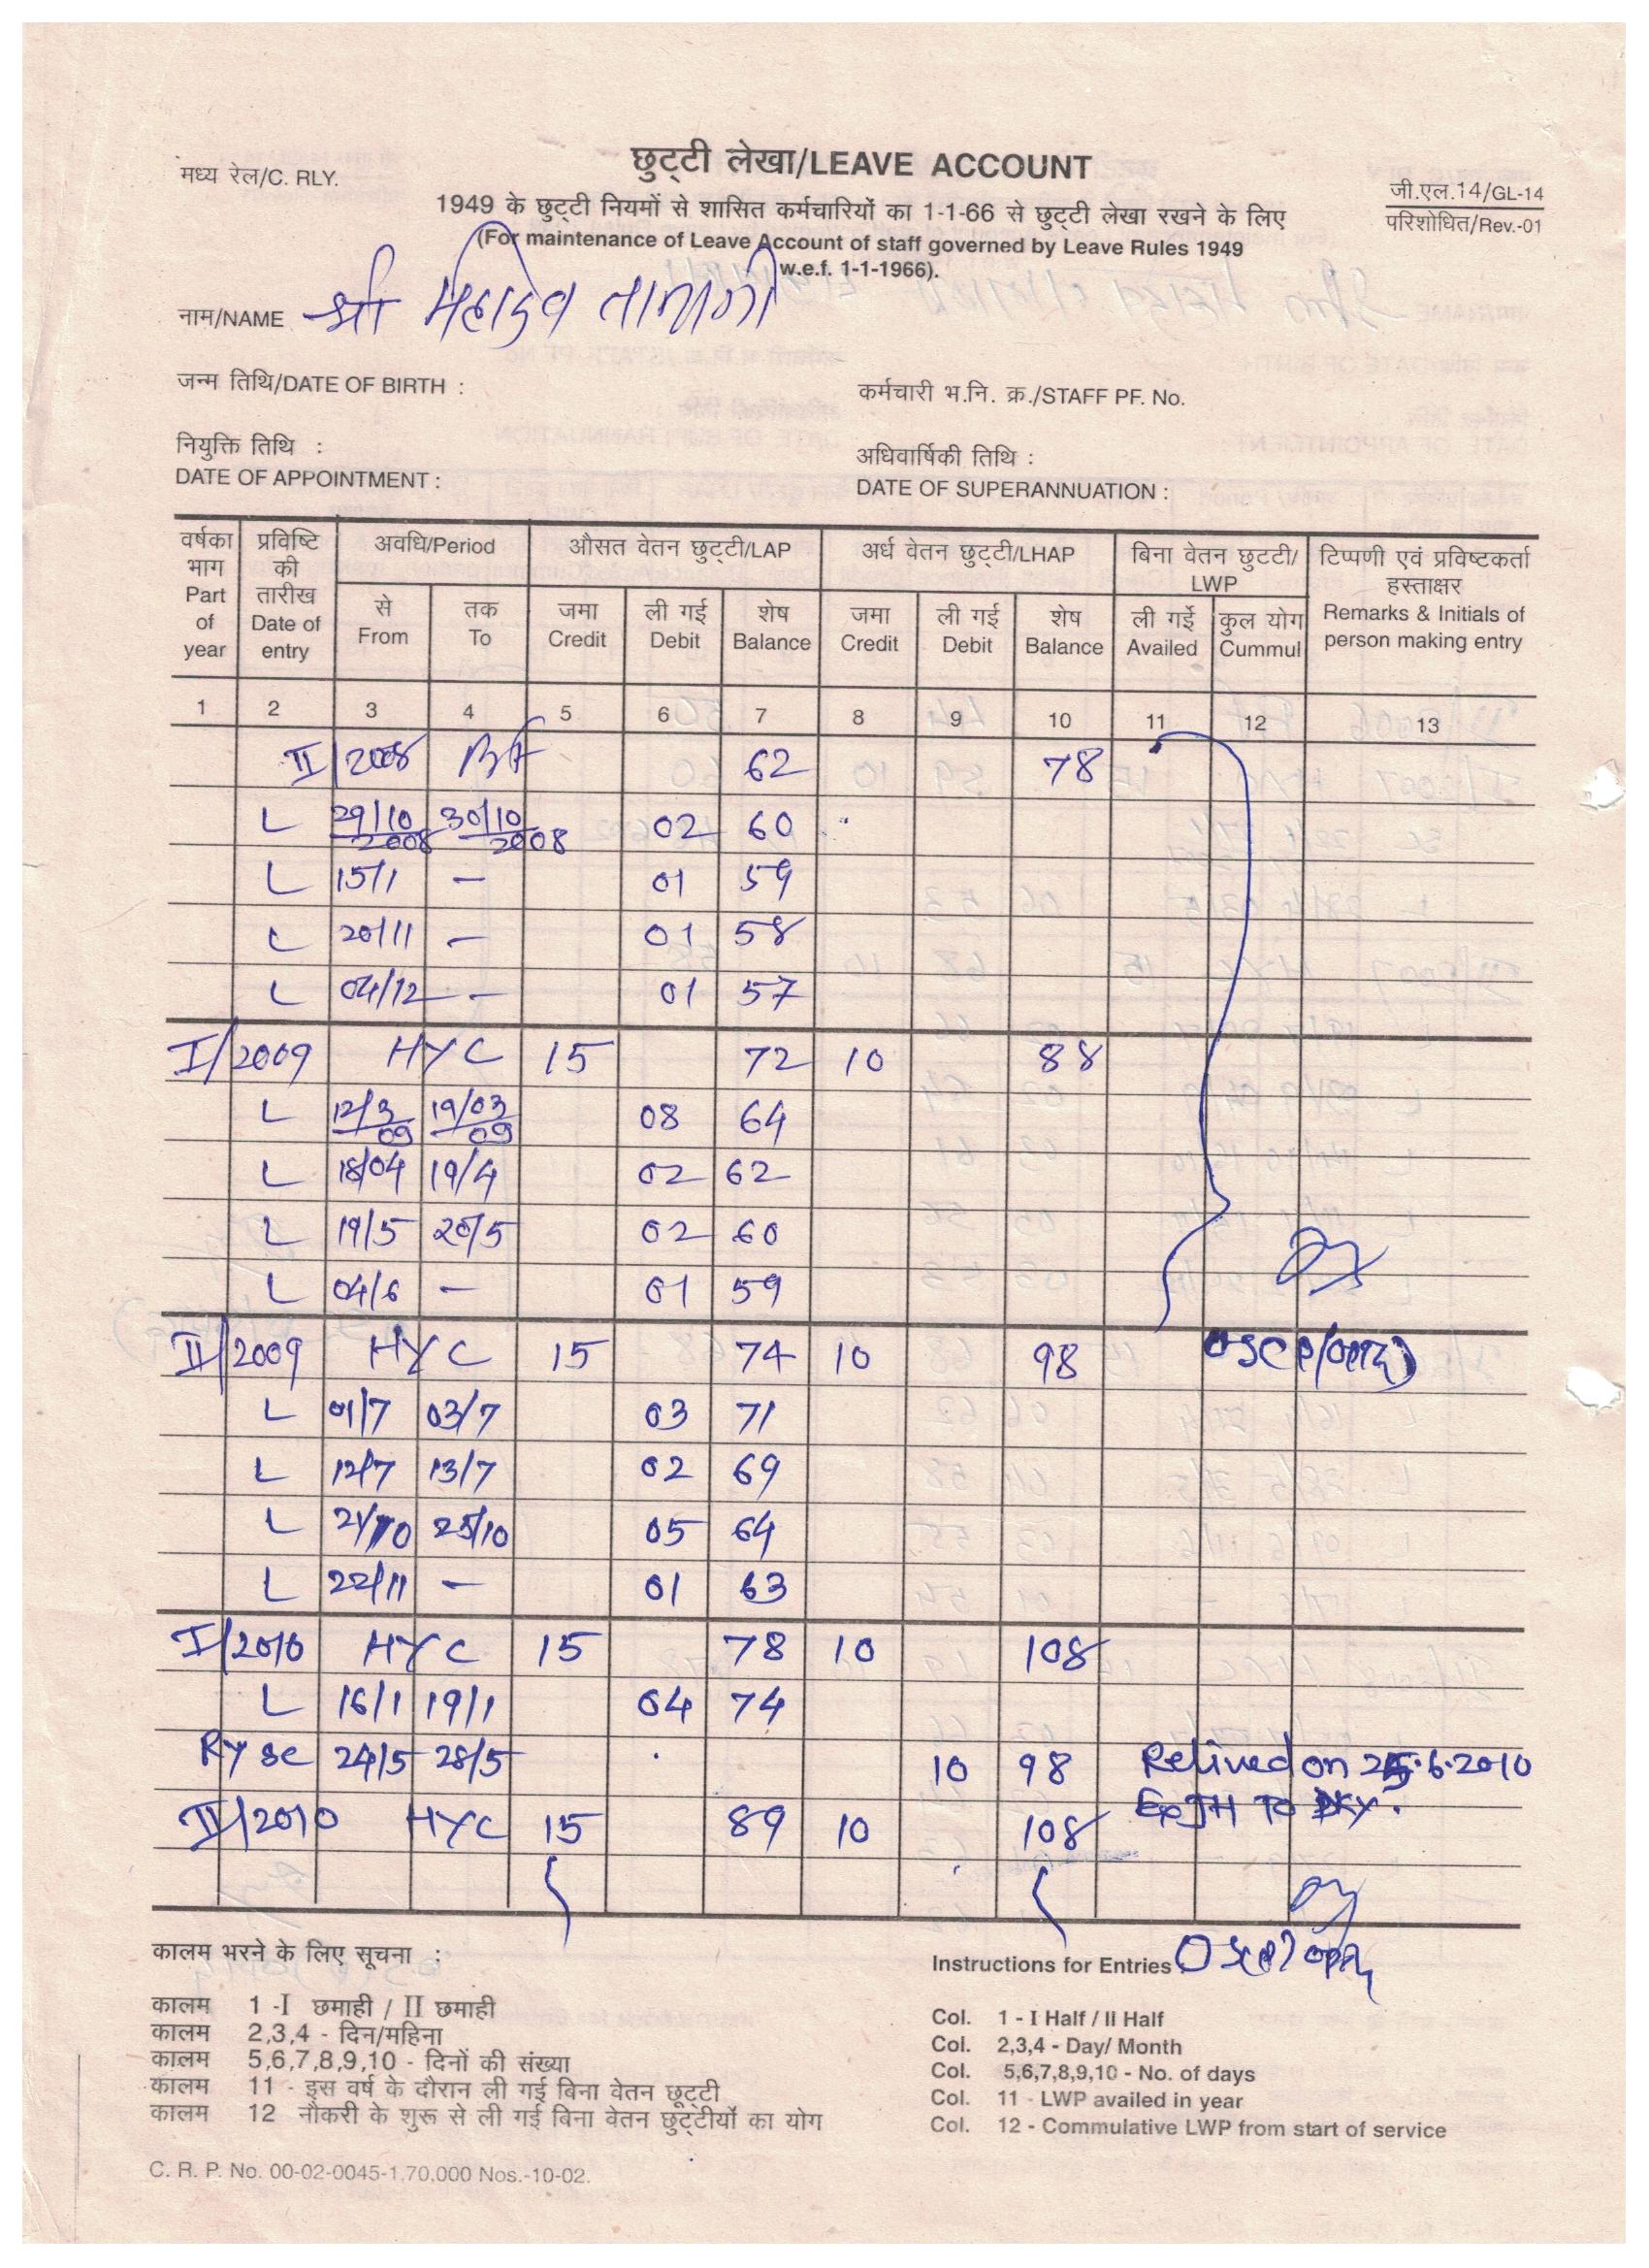 मध्य रेल/C. RLY.
छुट्टी लेखा/LEAVE ACCOUNT
जी.एल.14/GL-14
परिशोधित/Rev.-01
1949 के छुट्टी नियमों से शासित कर्मचारियों का 1-1-66 से छुट्टी लेखा रखने के लिए
(For maintenance of Leave Account of staff governed by Leave Rules 1949
w.e.f. 1-1-1966).
नाम/NAME श्री महादेव
जन्म तिथि/DATE OF BIRTH :
कर्मचारी भ.नि. क्र./STAFF PF. No.
नियुक्ति तिथि :
DATE OF APPOINTMENT :
अधिवार्षिकी तिथि :
DATE OF SUPERANNUATION :
वर्षका भाग Part of year
प्रविष्टि की तारीख Date of entry
अवधि/Period
से From
तक To
औसत वेतन छुट्टी/LAP
जमा Credit
ली गई Debit
शेष Balance
अर्ध वेतन छुट्टी/LHAP
जमा Credit
ली गई Debit
शेष Balance
बिना वेतन छुटटी/ LWP
ली गईे Availed
कुल योग Cummul
टिप्पणी एवं प्रविष्टकर्ता हस्ताक्षर
Remarks & Initials of person making entry
1 2 3 4 5 6 7 8 9 10 11 12 13
II/2008 B/f 62 78
L 29/10/2008 30/10/2008 02 60
L 15/1 — 01 59
L 20/11 — 01 58
L 04/12 — 01 57
I/2009 HYC 15 72 10 88
L 12/3/09 19/03/09 08 64
L 18/04 19/4 02 62
L 19/5 20/5 02 60
L 04/6 — 01 59
II/2009 HYC 15 74 10 98
L 01/7 03/7 03 71
L 12/7 13/7 02 69
L 21/10 25/10 05 64
L 22/11 — 01 63
I/2010 HYC 15 78 10 108
L 16/1 19/1 04 74
24/5 28/5 10 98 Relived on 25.6.2010
II/2010 HYC 15 89 10 108
कालम भरने के लिए सूचना :
कालम 1 -I छमाही / II छमाही
कालम 2,3,4 - दिन/महिना
कालम 5,6,7,8,9,10 - दिनों की संख्या
कालम 11 - इस वर्ष के दौरान ली गई बिना वेतन छूट्टी
कालम 12 नौकरी के शुरू से ली गई बिना वेतन छुट्टीयों का योग
Instructions for Entries
Col. 1 - I Half / II Half
Col. 2,3,4 - Day/ Month
Col. 5,6,7,8,9,10 - No. of days
Col. 11 - LWP availed in year
Col. 12 - Commulative LWP from start of service
C. R. P. No. 00-02-0045-1,70,000 Nos.-10-02.